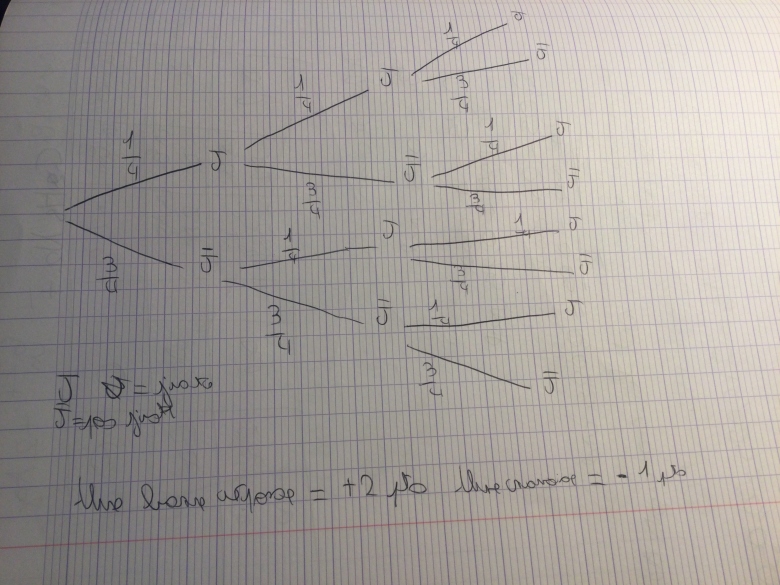 1/4 J
1/4 J̄
3/4
1/4 J
1/4 J
3/4 J̄
1/4 J
3/4 J̄
3/4 J̄
1/4 J
1/4 J
3/4 J̄
3/4 J̄
1/4 J
3/4 J̄
J J = juste
J̄ = pas juste
Une bonne réponse = +2 pts Une mauvaise = -1 pts